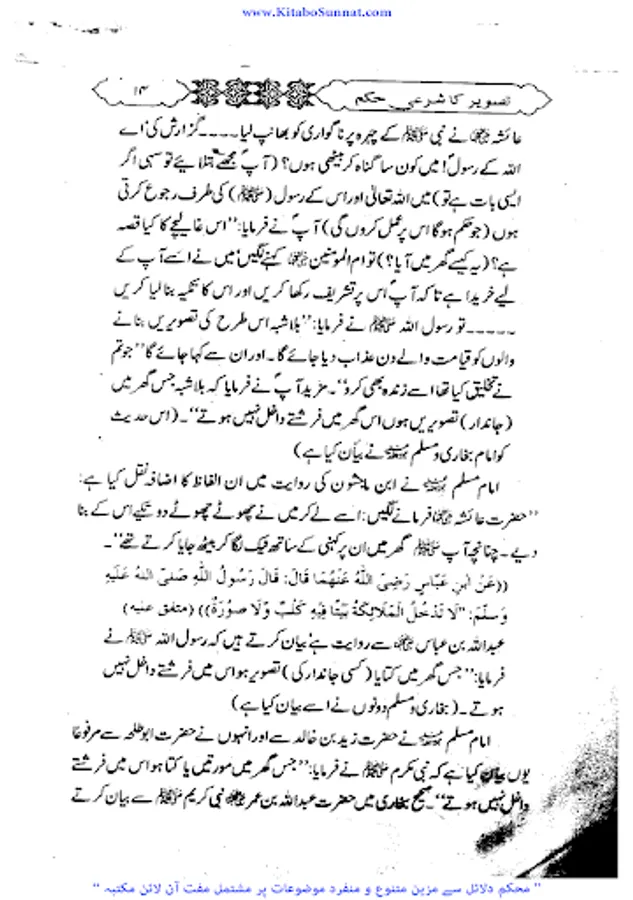 www.KitaboSunnat.com
تصویر کا شرعی حکم
۱۴
عائشہ ؓ نے نبی ﷺ کے چہرہ پر ناگواری کو بھانپ لیا ۔۔۔۔ گزارش کی ’اے
اللہ کے رسول! میں کون سا گناہ کر بیٹھی ہوں؟ (آپؐ مجھے بتلائیے تو سہی اگر
ایسی بات ہے تو) میں اللہ تعالیٰ اور اس کے رسول (ﷺ) کی طرف رجوع کرتی
ہوں (جو حکم ہوگا اس پر عمل کروں گی) آپؐ نے فرمایا: ’’اس غالیچے کا کیا قصہ
ہے؟ (یہ کیسے گھر میں آیا؟) تو ام المومنین ؓ کہنے لگیں ’میں نے اسے آپ کے
لیے خریدا ہے تاکہ آپؐ اس پر تشریف رکھا کریں اور اس کا تکیہ بنا لیا کریں
۔۔۔۔۔ تو رسول اللہ ﷺ نے فرمایا: ’’بلاشبہ اس طرح کی تصویریں بنانے
والوں کو قیامت والے دن عذاب دیا جائے گا۔ اور ان سے کہا جائے گا ’’جو تم
نے تخلیق کیا تھا اسے زندہ بھی کرو‘‘۔ مزید آپؐ نے فرمایا کہ بلاشبہ جس گھر میں
(جاندار) تصویریں ہوں اس گھر میں فرشتے داخل نہیں ہوتے‘‘۔ (اس حدیث
کو امام بخاری و مسلم نے بیان کیا ہے)
امام مسلم نے ابن ماجشون کی روایت میں ان الفاظ کا اضافہ نقل کیا ہے:
’’حضرت عائشہ ؓ فرمانے لگیں: اسے لے کر میں نے چھوٹے چھوٹے دو تکیے اس کے بنا
دیے۔ چنانچہ آپ ﷺ گھر میں ان پر کہنی کے ساتھ ٹیک لگا کر بیٹھ جایا کرتے تھے‘‘۔
((عَنْ ابْنِ عَبَّاسٍ رَضِیَ اللّٰہُ عَنْہُمَا قَالَ: قَالَ رَسُوْلُ اللّٰہِ صَلَّی اللّٰہُ عَلَیْہِ
وَسَلَّمَ: ’’لَا تَدْخُلُ الْمَلَائِکَۃُ بَیْتًا فِیْہِ کَلْبٌ وَلَا صُوْرَۃٌ)) (متفق علیہ)
عبداللہ بن عباس ؓ سے روایت ہے ’بیان کرتے ہیں کہ رسول اللہ ﷺ نے
فرمایا: ’’جس گھر میں کتا یا (کسی جاندار کی) تصویر ہو اس میں فرشتے داخل نہیں
ہوتے۔ (بخاری و مسلم دونوں نے اسے بیان کیا ہے)
امام مسلم نے حضرت زید بن خالد سے اور انہوں نے حضرت ابو طلحہ سے مرفوعا
یوں بیان کیا ہے کہ نبی مکرم ﷺ نے فرمایا: ’’جس گھر میں مورتیں یا کتا ہو اس میں فرشتے
داخل نہیں ہوتے‘‘۔ صحیح بخاری میں حضرت عبداللہ بن عمر ؓ نبی کریم ﷺ سے بیان کرتے
" محکم دلائل سے مزین متنوع و منفرد موضوعات پر مشتمل مفت آن لائن مکتبہ "